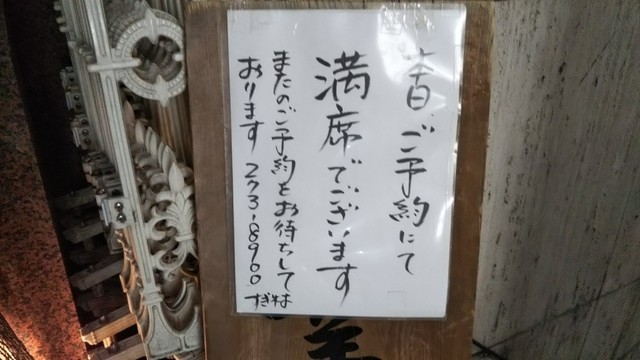 本日ご予約にて
満席でございます
またのご予約をお待ちして
おります 273-8900
すぎ村